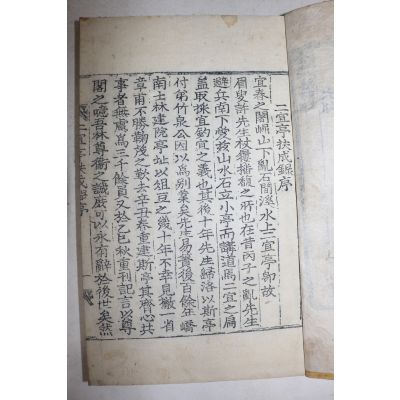 二宜亭扶成錄序
宜春之闍崛山下亂石間溪水上二宜亭卽故
眉叟許先生杖鏤楷馥之所也在昔丙子之亂先生
避兵南下愛玆山水石立小亭而講道焉二宜之扁
盖取採宜釣宜之義也其後十年先生歸洛以斯亭
付第竹泉公因以爲別業矣先生易簀後百餘年嶠
南士林建院亭址以俎豆之幾十年不幸見撤一省
章甫不勝鞠後之歎去辛丑春重建斯亭其齊心共
事者無慮爲三千餘員又於乙巳秋重刊記言以尊
閣之噫吾林尊衛之誠庶可以永有辭於後世矣然
二宜亭扶成錄序